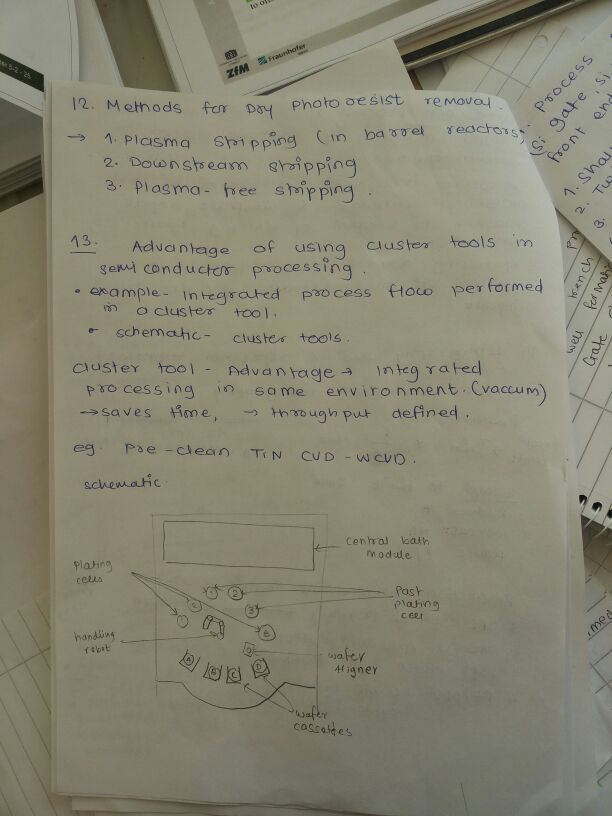 ZfM
Fraunhofer
12. Methods for Dry Photoresist removal.
→ 1. Plasma stripping (in barrel reactors)
2. Downstream stripping
3. Plasma-free stripping.
13. Advantage of using cluster tools in
semi conductor processing.
• example- Integrated process flow performed
in a cluster tool.
• schematic- cluster tools.
cluster tool - Advantage → Integrated
processing in same environment. (vaccum)
→ saves time, → throughput defined.
eg. Pre-clean TiN CVD - WCVD.
schematic.
central bath
module
Plating
cells
1
2
3
Post
plating
cell
2
1
3
handling
robot
wafer
Aligner
A
B
C
D
wafer
cassettes
process
Si gate, si
front end
1.
2.
3.
well
trench
formati
Gate